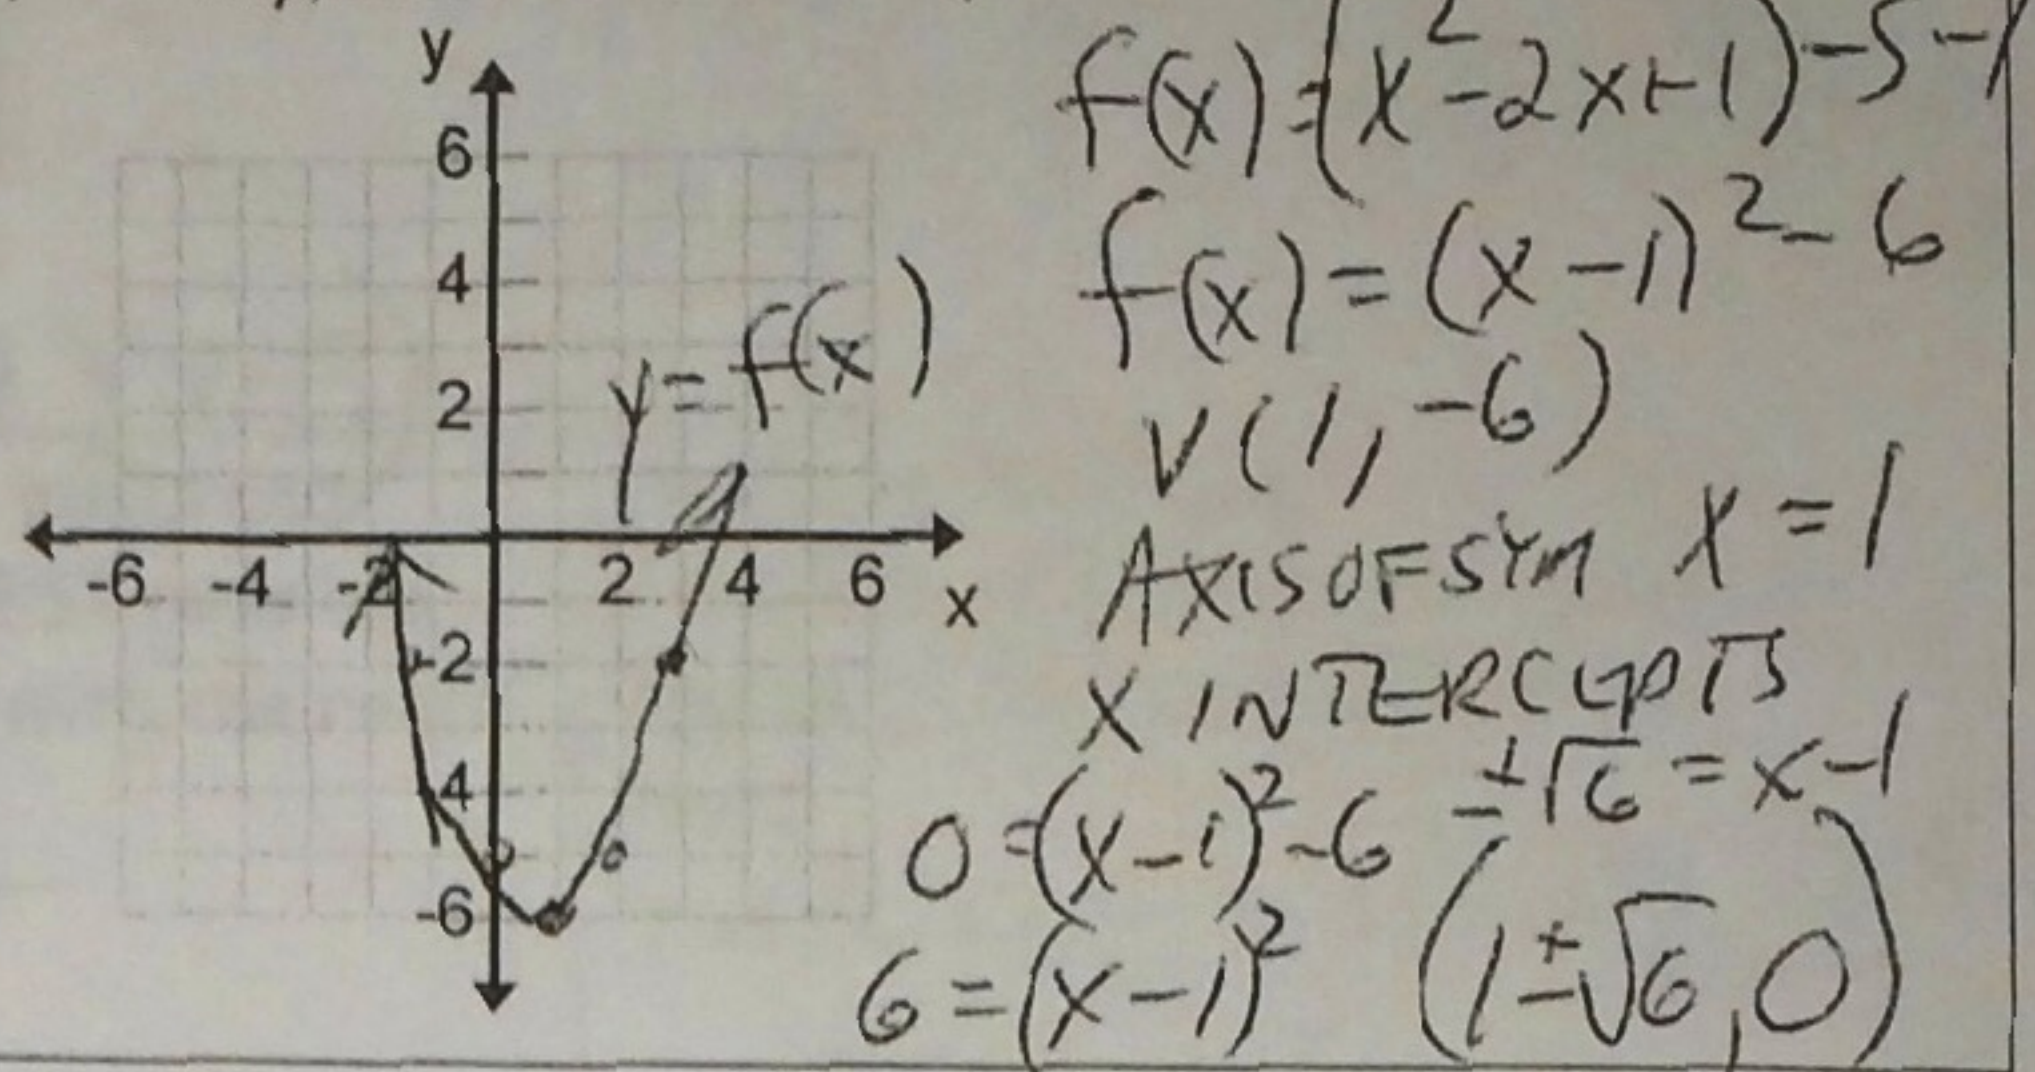 y
6
4
2
-6 -4 -2 2 4 6 x
-2
-4
-6
y = f(x)
f(x) = (x² - 2x + 1) - 5 - 1
f(x) = (x - 1)² - 6
V(1, -6)
AXIS OF SYM x = 1
X INTERCEPTS
0 = (x - 1)² - 6 ±√6 = x - 1
6 = (x - 1)² (1 ± √6, 0)